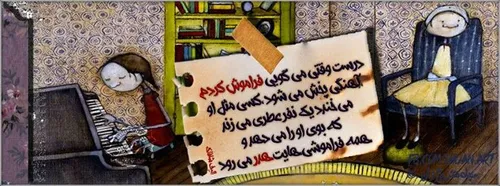 درست وقتی می گویی فراموش کردم
آهنگی پخش می شود.کسی مثل او
می خندد یک نفر عطری می زند
که بوی او را می دهد و
همه فراموشی هایت هدر می رود